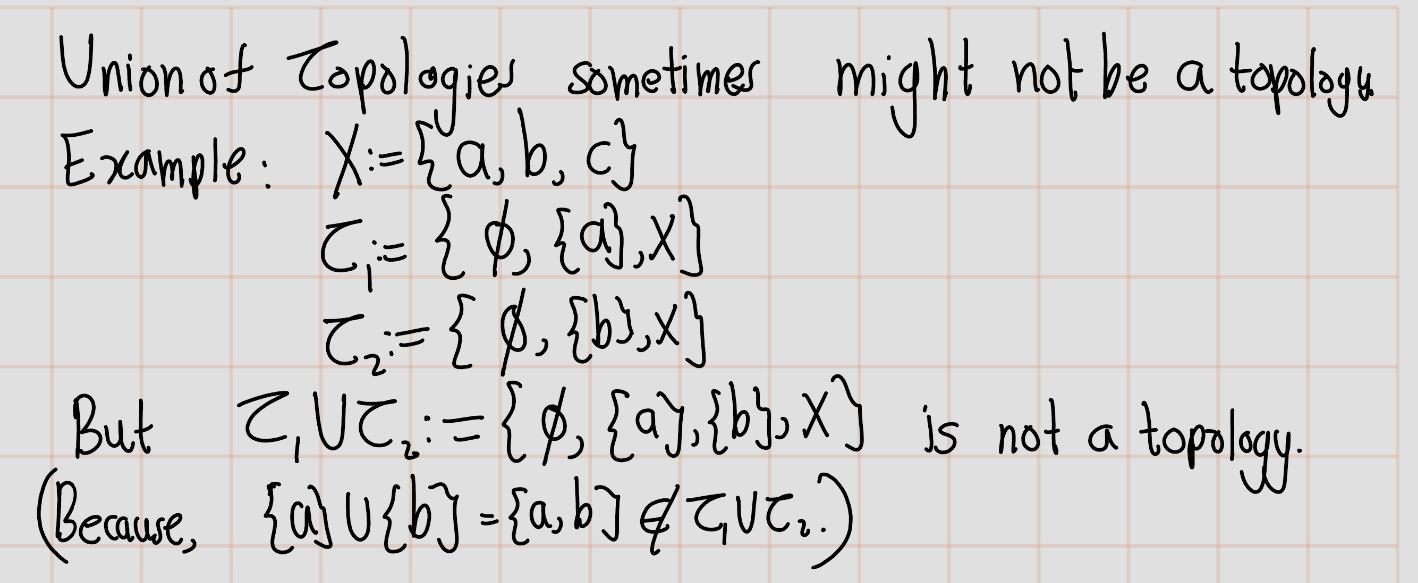 Union of Topologies sometimes might not be a topology.
Example: X:={a, b, c}
τ₁:= { ϕ, {a}, X}
τ₂:= { ϕ, {b}, X}
But τ₁∪τ₂:= {ϕ, {a}, {b}, X} is not a topology.
(Because, {a}∪{b} = {a,b} ∉ τ₁∪τ₂.)